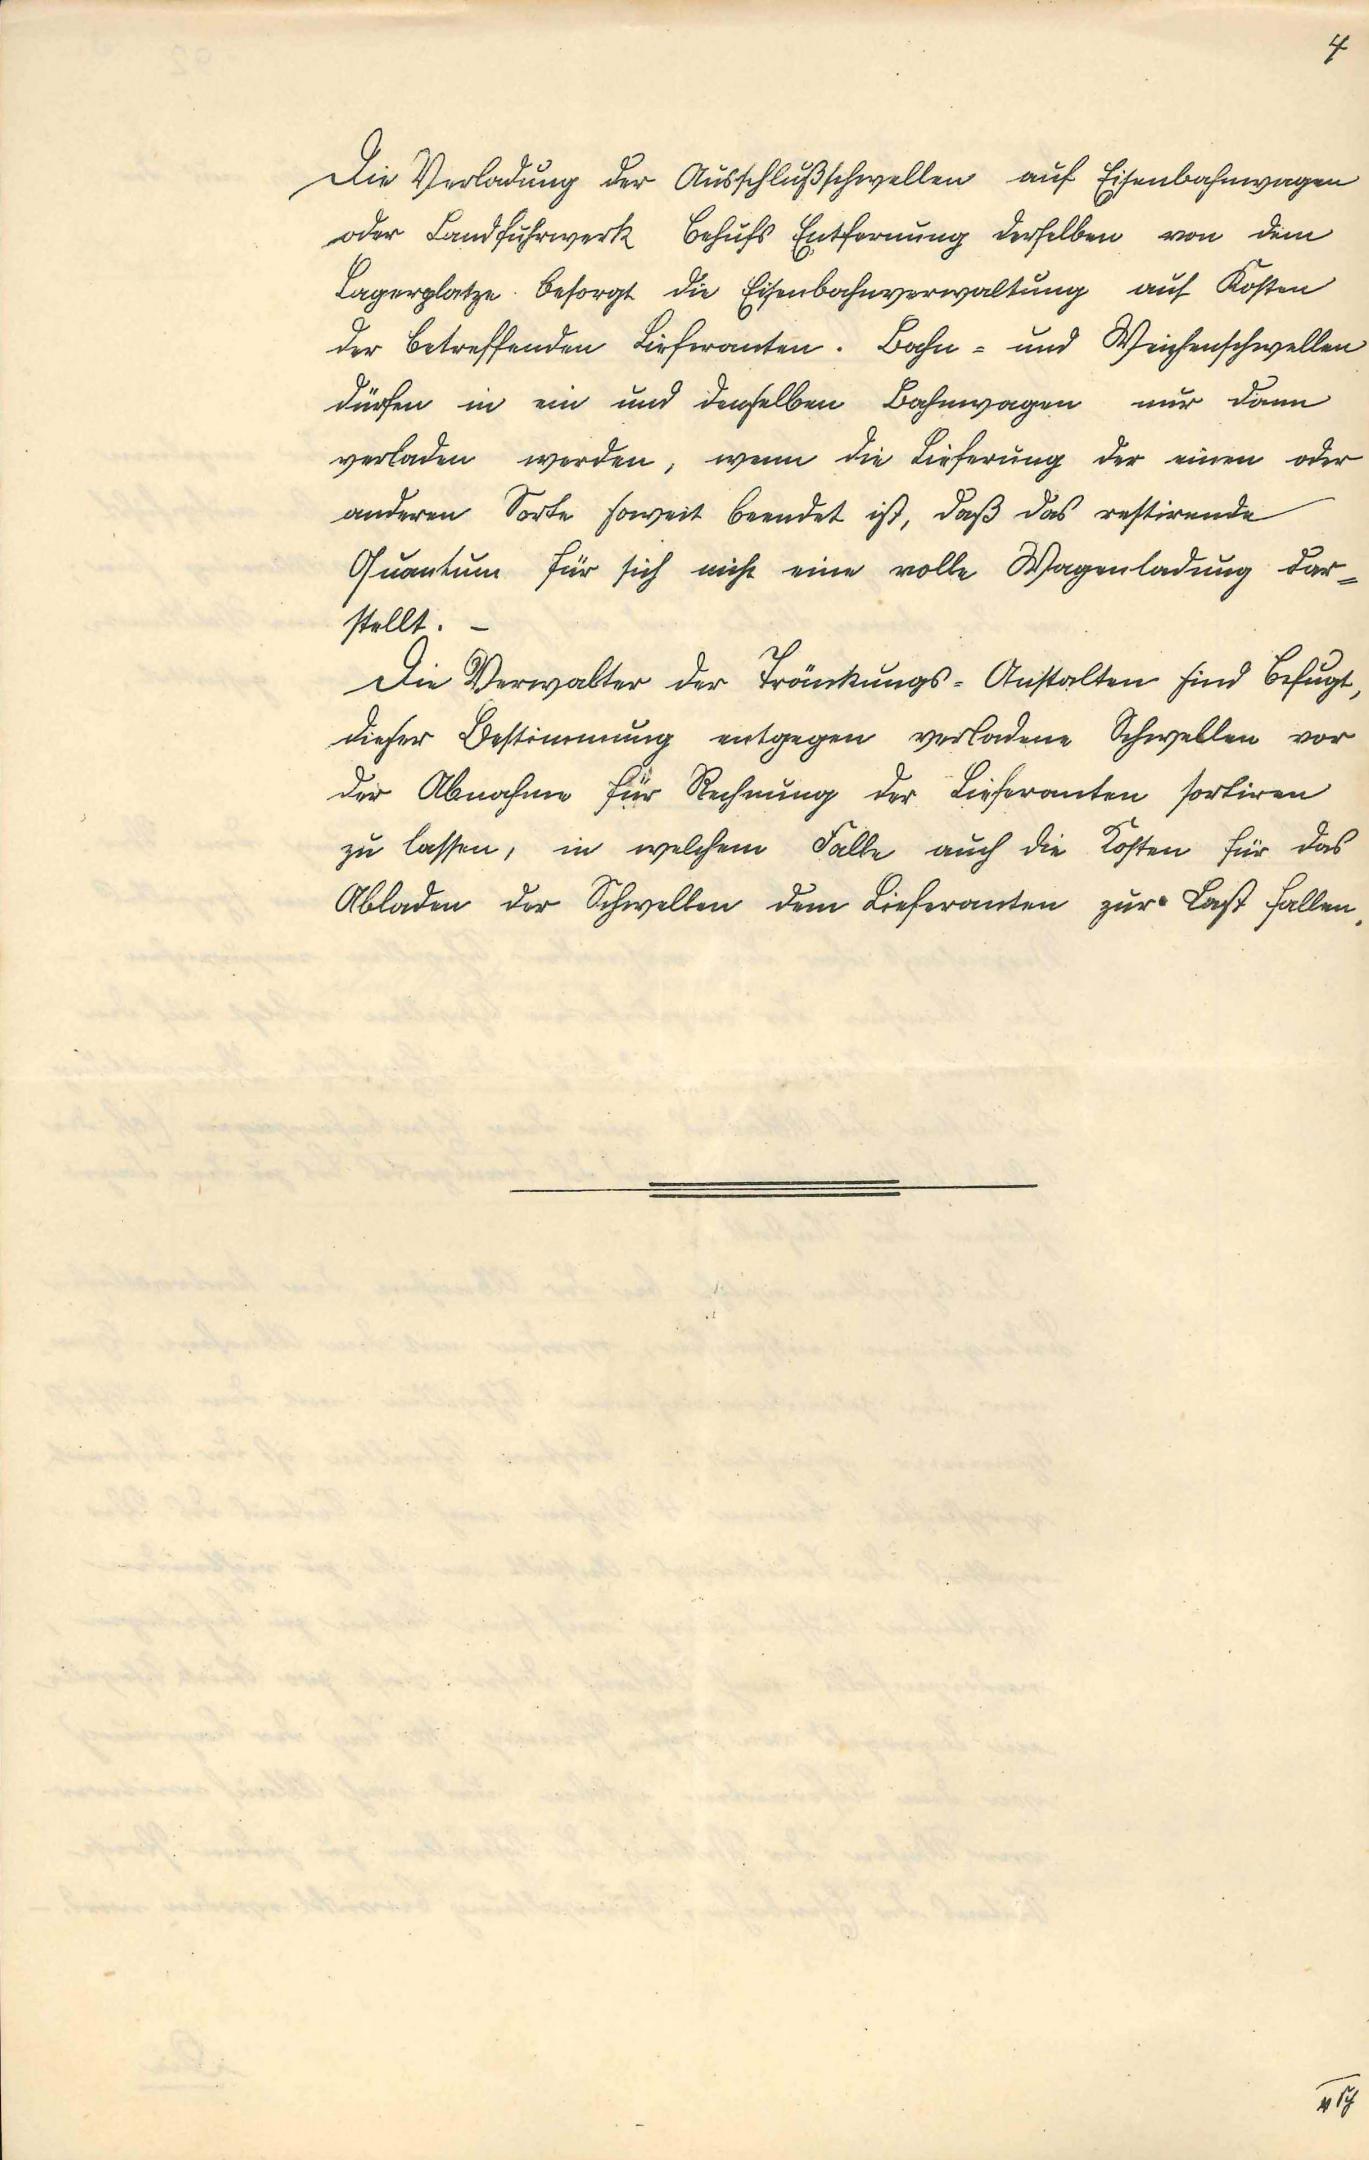 4
Die Verladung der Ausschlußschwellen auf Eisenbahnwagen
oder Landfuhrwerk behufs Entfernung derselben von dem
Lagerplatze besorgt die Eisenbahnverwaltung auf Kosten
der betreffenden Lieferanten. Bahn- und Weichenschwellen
dürfen in ein und denselben Bahnwagen nur dann
verladen werden, wenn die Lieferung der einen oder
anderen Sorte soweit beendet ist, daß das restirende
Quantum für sich nicht eine volle Wagenladung dar=
stellt. –
Die Verwalter der Tränkungs-Anstalten sind befugt,
dieser Bestimmung entgegen verladene Schwellen vor
der Abnahme für Rechnung der Lieferanten sortiren
zu lassen, in welchem Falle auch die Kosten für das
Abladen der Schwellen dem Lieferanten zur Last fallen.